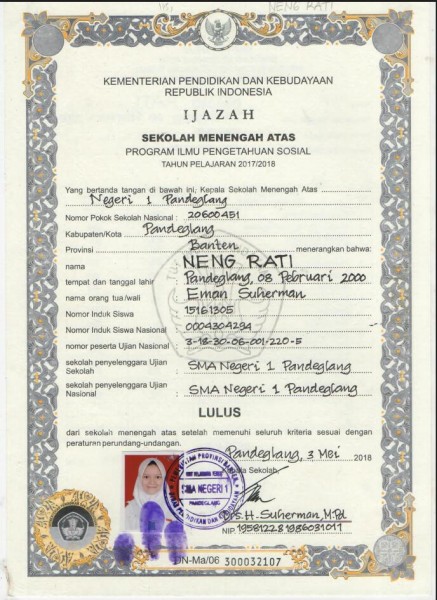 NENG RATI
KEMENTERIAN PENDIDIKAN DAN KEBUDAYAAN
REPUBLIK INDONESIA
IJAZAH
SEKOLAH MENENGAH ATAS
PROGRAM ILMU PENGETAHUAN SOSIAL
TAHUN PELAJARAN 2017/2018
Yang bertanda tangan di bawah ini, Kepala Sekolah Menengah Atas
Negeri 1 Pandeglang
Nomor Pokok Sekolah Nasional : 20600451
Kabupaten/Kota : Pandeglang
Provinsi : Banten menerangkan bahwa:
nama : NENG RATI
tempat dan tanggal lahir : Pandeglang, 08 Februari 2000
nama orang tua/wali : Eman Suherman
Nomor Induk Siswa : 15161305
Nomor Induk Siswa Nasional : 0004304294
nomor peserta Ujian Nasional : 3-18-30-06-001-220-5
sekolah penyelenggara Ujian Sekolah : SMA Negeri 1 Pandeglang
sekolah penyelenggara Ujian Nasional : SMA Negeri 1 Pandeglang
LULUS
dari sekolah menengah atas setelah memenuhi seluruh kriteria sesuai dengan
peraturan perundang-undangan.
Pandeglang, 3 Mei 2018
Kepala Sekolah,
SMA NEGERI 1
PANDEGLANG
Drs. H. Suherman, M.Pd
NIP. 195812281986031011
DN-Ma/06 300032107